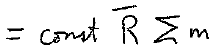 = const R̅ Σ m